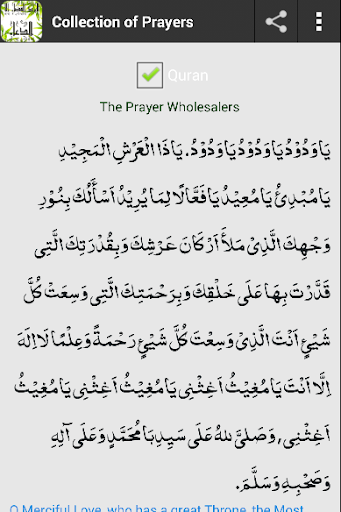 Collection of Prayers
Quran
The Prayer Wholesalers
يَا وَدُوْدُ يَا وَدُوْدُ يَا وَدُوْدُ. يَاذَا الْعَرْشِ الْمَجِيْدِ
يَا مُبْدِئُ يَا مُعِيْدُ يَا فَعَّالًا لِمَا يُرِيْدُ اَسْأَلُكَ بِنُوْرِ
وَجْهِكَ الَّذِيْ مَلَأَ اَرْكَانَ عَرْشِكَ وَبِقُدْرَتِكَ الَّتِى
قَدَّرْتَ بِهَا عَلَى خَلْقِكَ وَبِرَحْمَتِكَ الَّتِى وَسِعَتْ كُلَّ
شَيْئٍ اَنْتَ الَّذِىْ وَسِعْتَ كُلَّ شَيْئٍ رَحْمَةً وَعِلْمًا لَااِلٰهَ
اِلَّا اَنْتَ يَا مُغِيْثُ اَغِثْنِى يَا مُغِيْثُ اَغِثْنِى يَا مُغِيْثُ
اَغِثْنِى, وَصَلىَّ للهُ عَلَى سَيِدِنَا مُحَمَّدٍ وَعَلَى آلِهِ
وَصَحْبِهِ وَسَلَّمَ.
O Merciful Love, who has a great Throne, the Most